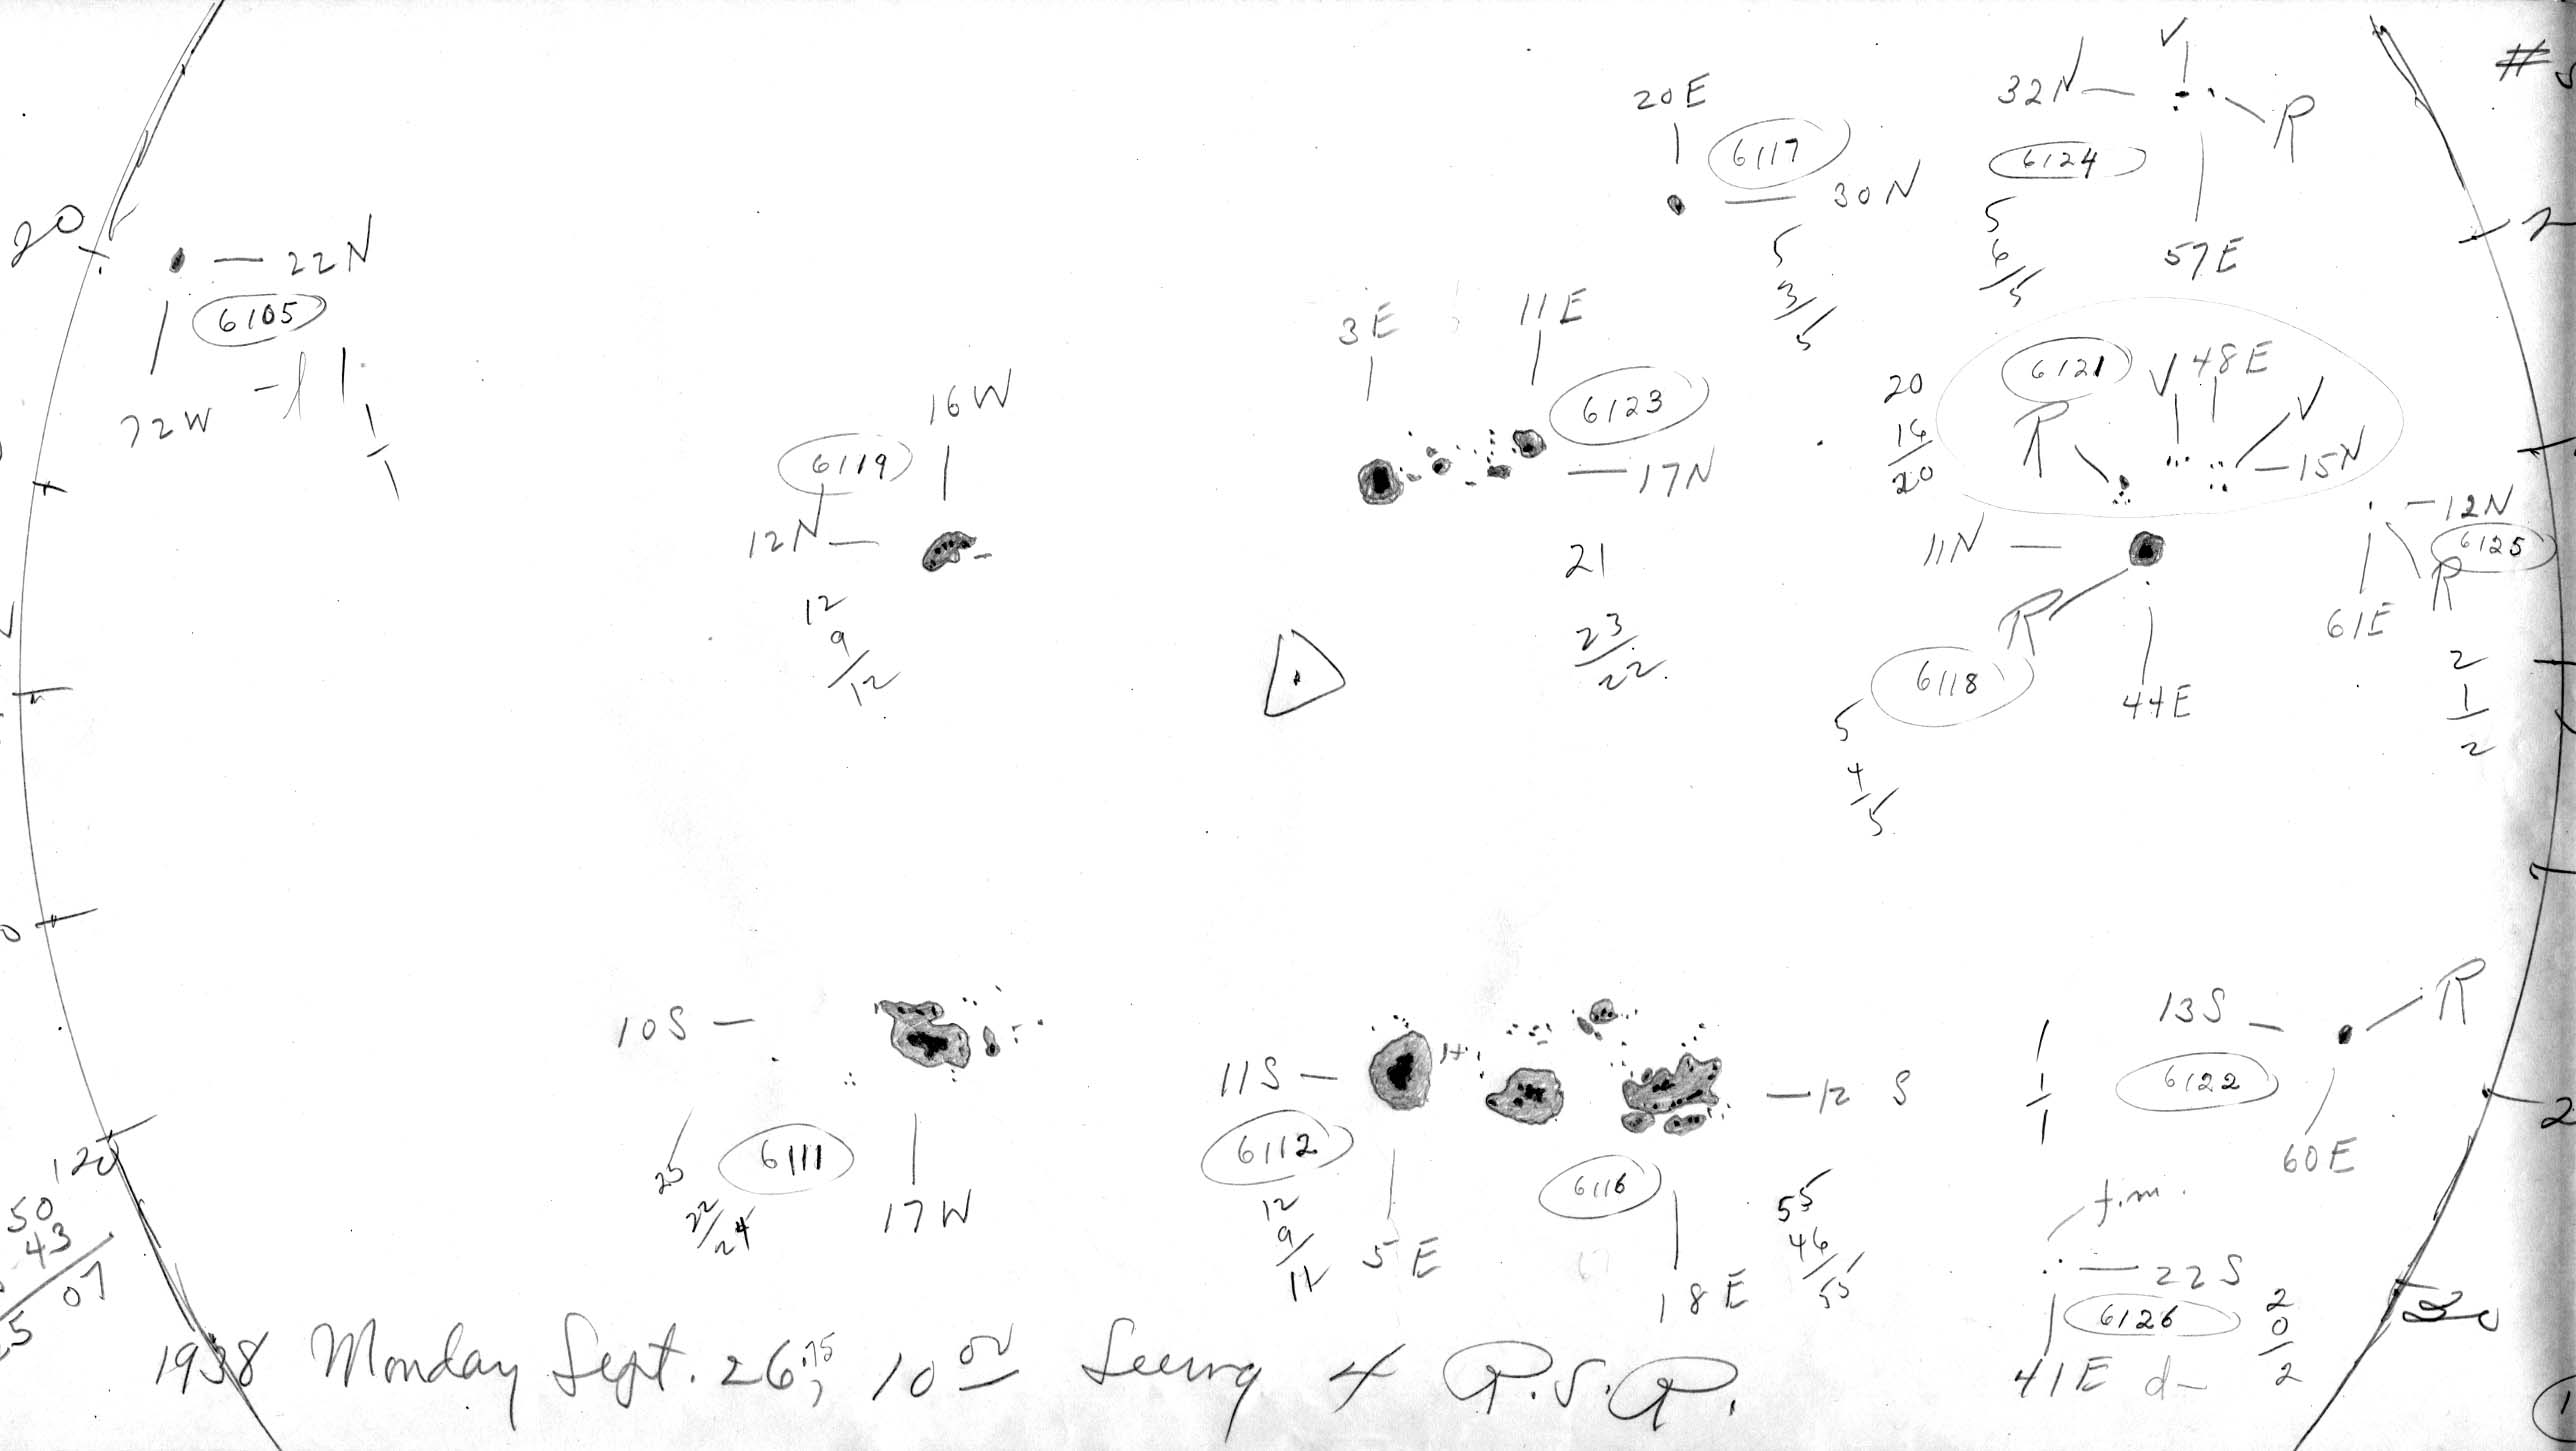 20E
32N
V
R
6117
6124
30N
5
3/5
5
6/5
57E
20
22N
6105
72W
1
1
3E
11E
6123
17N
21
23/22
16W
6119
12N
12
9/12
20
16
20
6121
V
48E
V
R
15N
12N
6125
R
61E
2
1
2
11N
R
6118
44E
5
4/5
10S
25
22/24
6111
17W
11S
12 S
6112
12
9
5E
6116
18E
55
46/55
13S
R
1
1
1
6122
60E
f.m.
22S
6126
41E d-
2
0
2
20
50
43
07
30
1938 Monday Sept. 26.75, 10 00 Seeing 4